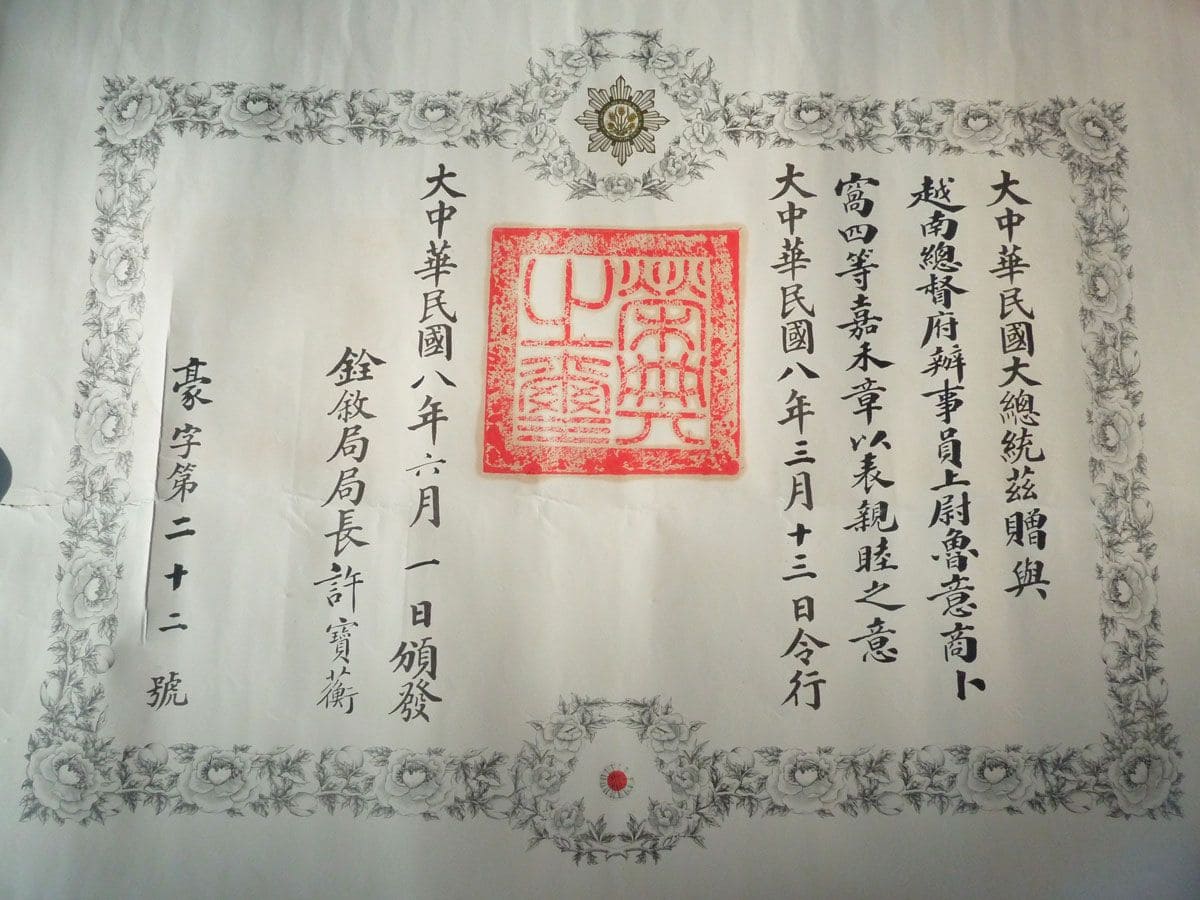 大中華民國大總統茲贈與
越南總督府辦事員上尉魯意商卜
窩四等嘉禾章以表親睦之意
大中華民國八年三月十三日令行
榮典之璽
大中華民國八年六月一日頒發
銓敘局局長許寶蘅
豪字第二十二號